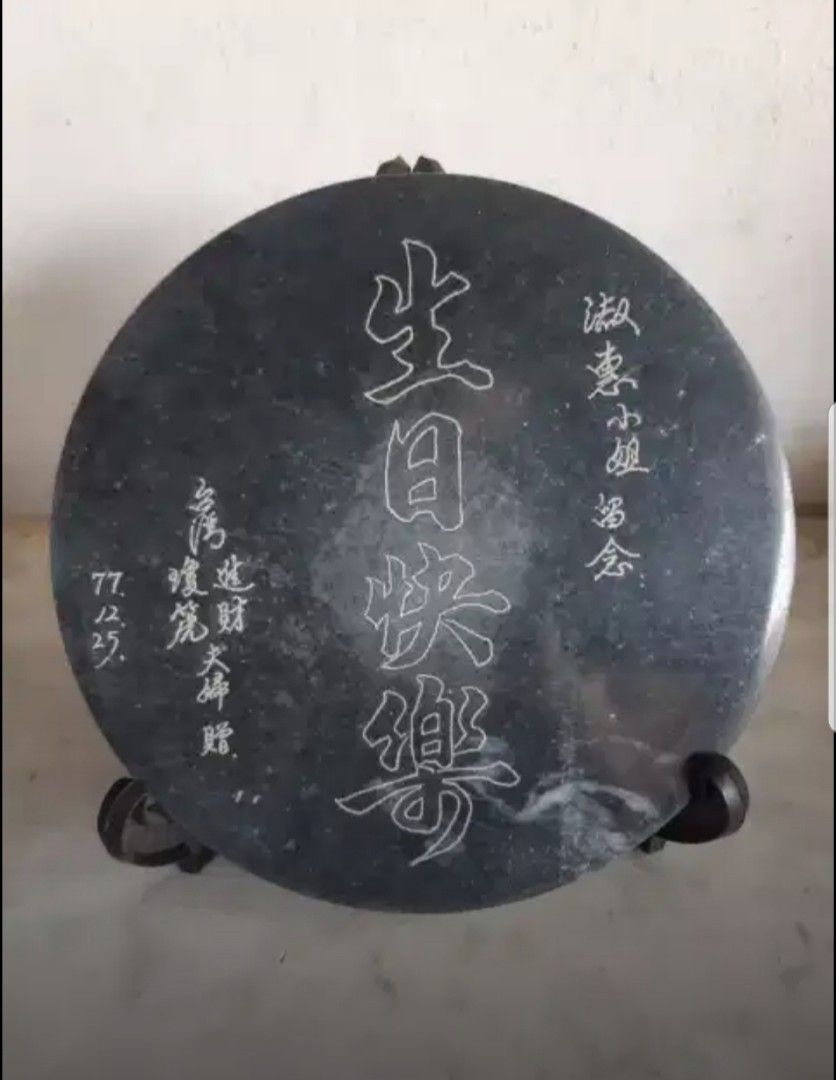 淑惠小姐 留念
生日快樂
台灣 進財
瓊箢 夫婦 贈
77.
12.
25.